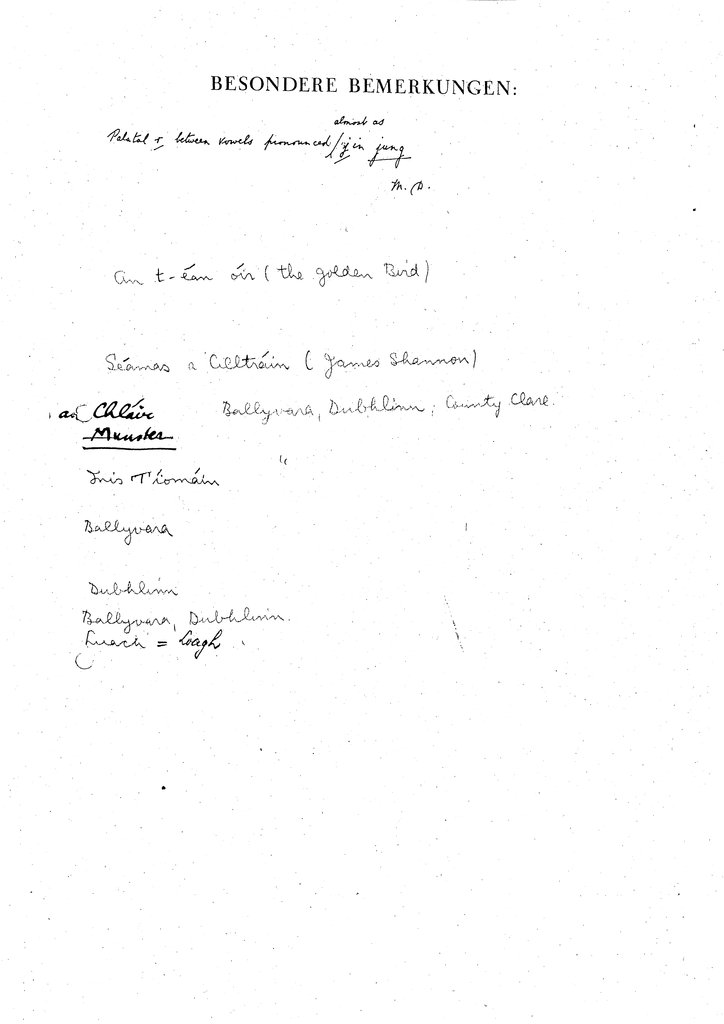 BESONDERE BEMERKUNGEN:
almost as
Palatal r between vowels pronounced / j in jung
M. D.
An t-éan óir (the golden Bird)
Séamas Cilltráin (James Shannon)
Chláir Ballyvara, Dubhlinn, County Clare.
Munster
"
Inis T'íomáin
Ballyvara
Dubhlinn
Ballyvara, Dubhlinn.
Luach = Loagh